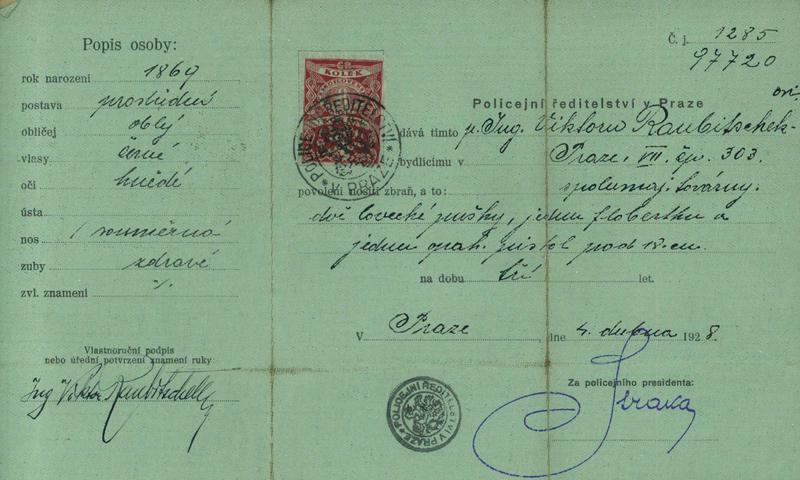 Popis osoby:
rok narození 1869
postava prostřední
obličej oblý
vlasy černé
oči hnědé
ústa
nos souměrná
zuby zdravé
zvl. znamení ./.
Vlastnoruční podpis
nebo úřední potvrzení znamení ruky:
Ing Viktor Raubitschek
ČR
KOLEK
POLICEJNÍ ŘEDITELSTVÍ
V PRAZE
Č. j. 1285
97720
Policejní ředitelství v Praze
dává tímto p. Ing. Viktoru Raubitschek-
ovi,
bydlícímu v Praze, VII. čp. 303.
spolumaj. továrny.
povolení nositi zbraň, a to:
dvě lovecké pušky, jednu flobertku a
jednu opak. pistol pod 18 cm.
na dobu tří let.
V Praze, dne 4. dubna 1928.
Za policejního presidenta:
Straka
POLICEJNÍ ŘEDITELSTVÍ V PRAZE